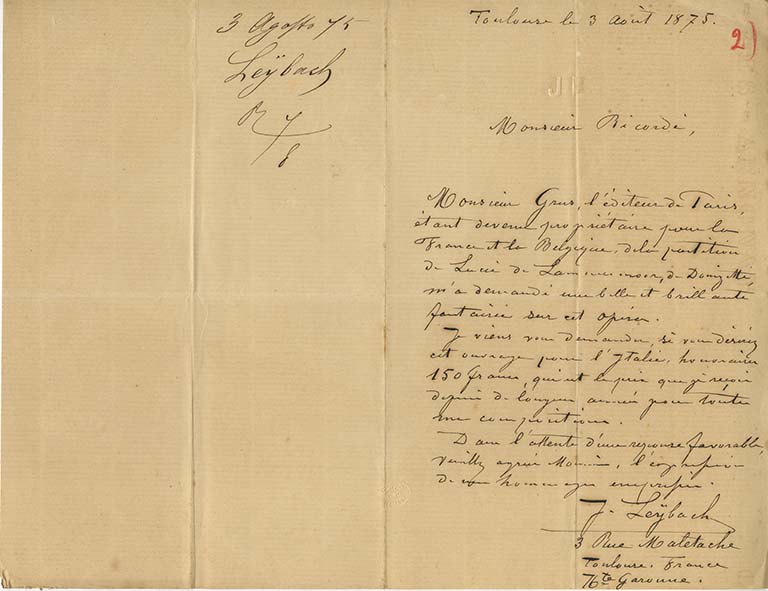 3 Agosto 75
Leÿbach
R 7/8
Toulouse le 3 Août 1875.
2)
Monsieur Ricordi,
Monsieur Grus, l'éditeur de Paris,
étant devenu propriétaire pour la
France et la Belgique, de la partition
de Lucie de Lammermoor, de Donizetti,
m'a demandé une belle et brillante
fantaisie sur cet opéra.
Je viens vous demander, si vous désirez
cet ouvrage pour l'Italie, honoraires
150 francs, qui est le prix que je reçois
depuis de longues années pour toutes
mes compositions.
Dans l'attente d'une réponse favorable,
veuillez agréer Monsieur, l'expression
de mes hommages empressés.
J. Leÿbach
3 Rue Maletache
Toulouse. France
Hte Garonne.